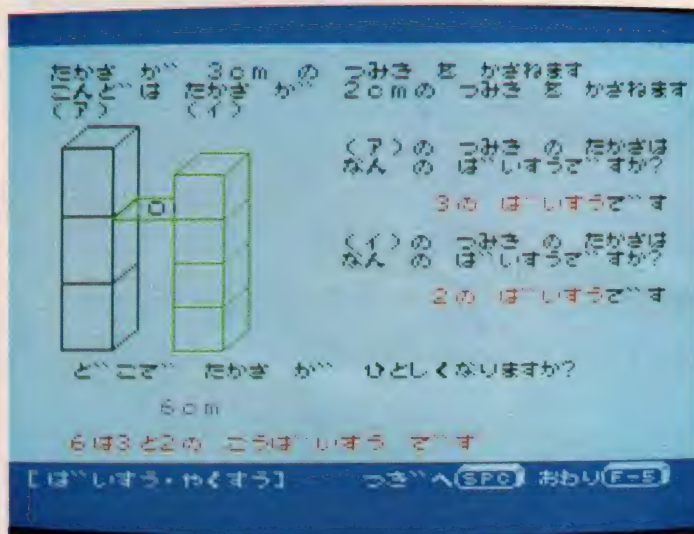 たかさ が゛ 3cm の つみき を かさねます
こんど゛は たかさ が゛ 2cmの つみき を かさねます
(ア) (イ)
(ア)の つみき の たかさは
なん の は゛いすうで゛すか?
3の は゛いすうで゛す
(イ)の つみき の たかさは
なん の は゛いすうで゛すか?
2の は゛いすうで゛す
ど゛こで゛ たかさ が゛ ひとしくなりますか?
6cm
6は3と2の こうは゛いすう で゛す
[は゛いすう・やくすう] つき゛へ(SPC) おわり(F-5)